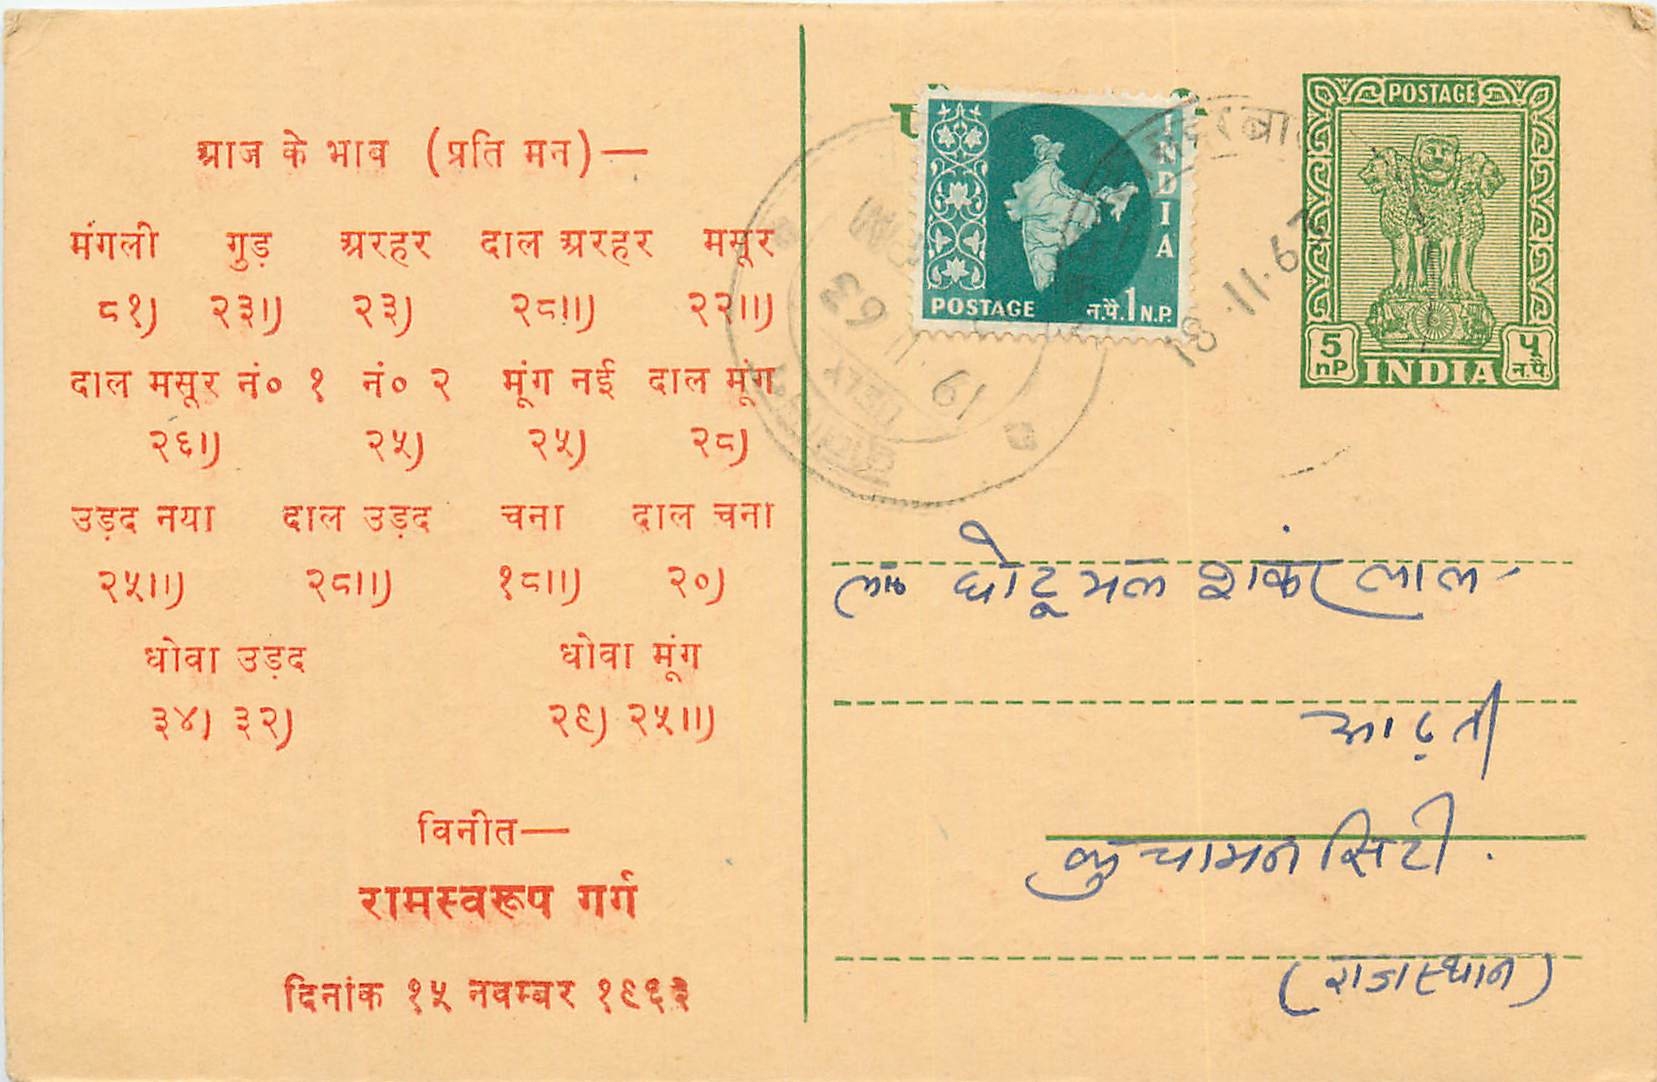 आज के भाव (प्रति मन)—
मंगली गुड़ अरहर दाल अरहर मसूर
८१) २३।) २३) २८॥) २२॥)
दाल मसूर नं० १ नं० २ मूंग नई दाल मूंग
२६।) २५) २५) २८)
उड़द नया दाल उड़द चना दाल चना
२५॥) २८॥) १८॥) २०)
धोवा उड़द धोवा मूंग
३४) ३२) २९) २५॥)
विनीत—
रामस्वरूप गर्ग
दिनांक १५ नवम्बर १९६३
INDIA
POSTAGE न.पै.1 N.P.
POSTAGE
5 nP INDIA न.पै.
18.11.63
19 11 63
DELY
घोटूमल शंकर लाल-
आढ़ती
कुचामन सिटी.
(राजस्थान)